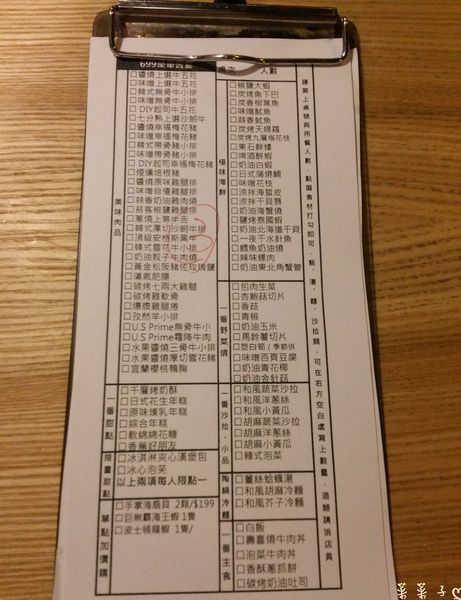 699豪華套餐
桌次 人數
美味肉品
□醬燒上選牛五花
□味噌上選牛五花
□韓式無骨牛小排
□味噌無骨牛小排
□DIY起司牛五花
□七分熟上選沙朗牛
□醬燒幸福梅花豬
□味噌幸福梅花豬
□韓式帶骨豬小排
□味噌帶骨豬小排
□DIY起司幸福梅花豬
□煙燻培根豬
□醬燒原味雞腿排
□味噌自慢雞腿排
□蒜香奶油雞肉燒
□蒜客椒鹽雞腿排
□蔥燒上等牛舌
□韓式厚切沙朗牛排
□頂級安格斯黑牛
□韓式雪花牛小排
□奶油骰子牛肉燒
□黃金松阪豬佐玫瑰鹽
□蒲氣肥腸
□碳烤七兩大雞腿
□碳烤雞軟骨
□爆漿雞腿捲
□孜然羊小排
□U.S Prime無骨牛小
□U.S Prime霜降牛肉
□水果醬燒三骨牛小排
□水果醬燒厚切雪花豬
□宜蘭櫻桃鴨胸
一番甜點
□千層烤奶酥
□日式花生年糕
□原味煉乳年糕
□綜合年糕
□軟綿綿花糖
□香蕉好朋友
限量甜點
□冰淇淋夾心漢堡包
□冰心泡芙
以上兩項每人限點一
單點加價購
□手掌海扇貝 2顆/$199
□巨無霸海王蝦 1隻
□波士頓龍蝦 1隻/
極味海鮮
□椒鹽大蝦
□炭烤魚下巴
□炭香柳葉魚
□味噌魷魚
□蒜香魷魚
□炭烤天婦羅
□炭烤九層塔花枝
□東石鮮蠔
□啤酒醉蝦
□奶油白蝦
□日式蒲燒鯛
□味噌花枝
□涼拌海蜇皮
□涼拌干貝唇
□奶油海蟹燒
□鹽烤泰國蝦
□奶油北海道干貝
□一夜干水針魚
□鱈魚奶油燒
□辣味螺肉
□奶油東北角蟹管
一番野菜燒
□包肉生菜
□杏鮑菇切片
□香菇
□青椒
□奶油玉米
□馬鈴薯切片
□筊白筍(季節供
□味噌百頁豆腐
□奶油青花椰
□奶油金針菇
一番沙拉、小品
□和風蔬菜沙拉
□和風洋蔥絲
□和風小黃瓜
□胡麻蔬菜沙拉
□胡麻洋蔥絲
□胡麻小黃瓜
□韓式泡菜
陶鍋冷麵
□薑絲蛤蠣湯
□和風胡麻冷麵
□和風芥子冷麵
一番主食
□白飯
□壽喜燒牛肉丼
□泡菜牛肉丼
□香酥蔥抓餅
□碳烤奶油吐司
請寫上桌號與用餐人數，點選食材打勾即可，飯、湯、麵、沙拉類，可在右方空白處寫上數量，酒類請洽店員
菜菜子